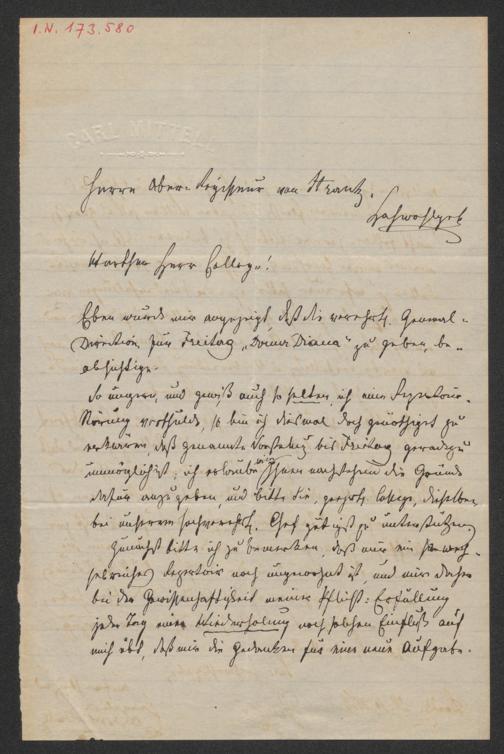 I.N. 173.580
CARL MITTEL
Herrn Ober-Regisseur von Strantz.
Hochwohlgeb.
Werther Herr College!
Eben wurde mir angezeigt, daß die verehrl. General-
Direction, zum Freitag „Donna Diana“ zu geben, be-
absichtige.
So ungern, und gewiß auch so selten, ich eine Repertoir-
Störung verschulde, so bin ich diesmal doch genöthiget zu
erklären, daß genannte Vorstellung bis Freitag geradezu
unmöglich ist; ich erlaube mir Ihnen nachstehend die Gründe
dafür anzugeben, und bitte Sie, geehrt. College, dieselben
bei unserem hochverehrt. Chef gütigst zu unterstützen.
Zunächst bitte ich zu bemerken, daß mir ein so wech-
selreiches Repertoir noch ungewohnt ist, und mir dieses
bei der Gewissenhaftigkeit meiner Pflicht: Erfüllung
jeden Tag einer Wiederholung noch solchen Einfluß auf
mich übt, daß mir die Gedanken für eine neue Aufgabe